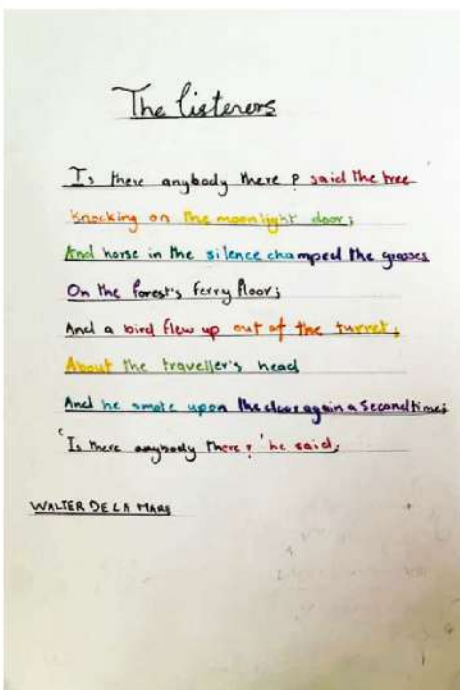 The listeners
Is there anybody there? said the tree
Knocking on the moonlight door;
And horse in the silence champed the grasses
On the forest's ferry floor;
And a bird flew up out of the turret,
About the traveller's head
And he smote upon the door again a second time;
'Is there anybody there?' he said;
WALTER DE LA MARE